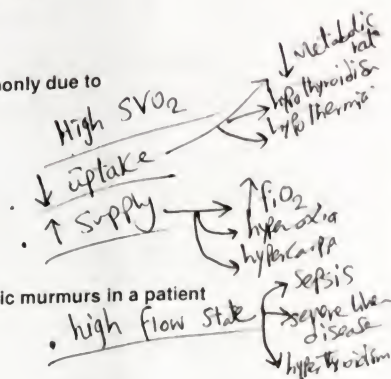 only due to
High SVO2
↓ uptake
↓ Metabolic rate
hypothyroidism
hypothermia
. ↑ Supply
↑ fiO2
hyperoxia
ic murmurs in a patient
. high flow State
Sepsis
severe
disease
hyperthyroidism